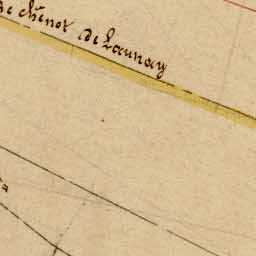 de chénot de Launay